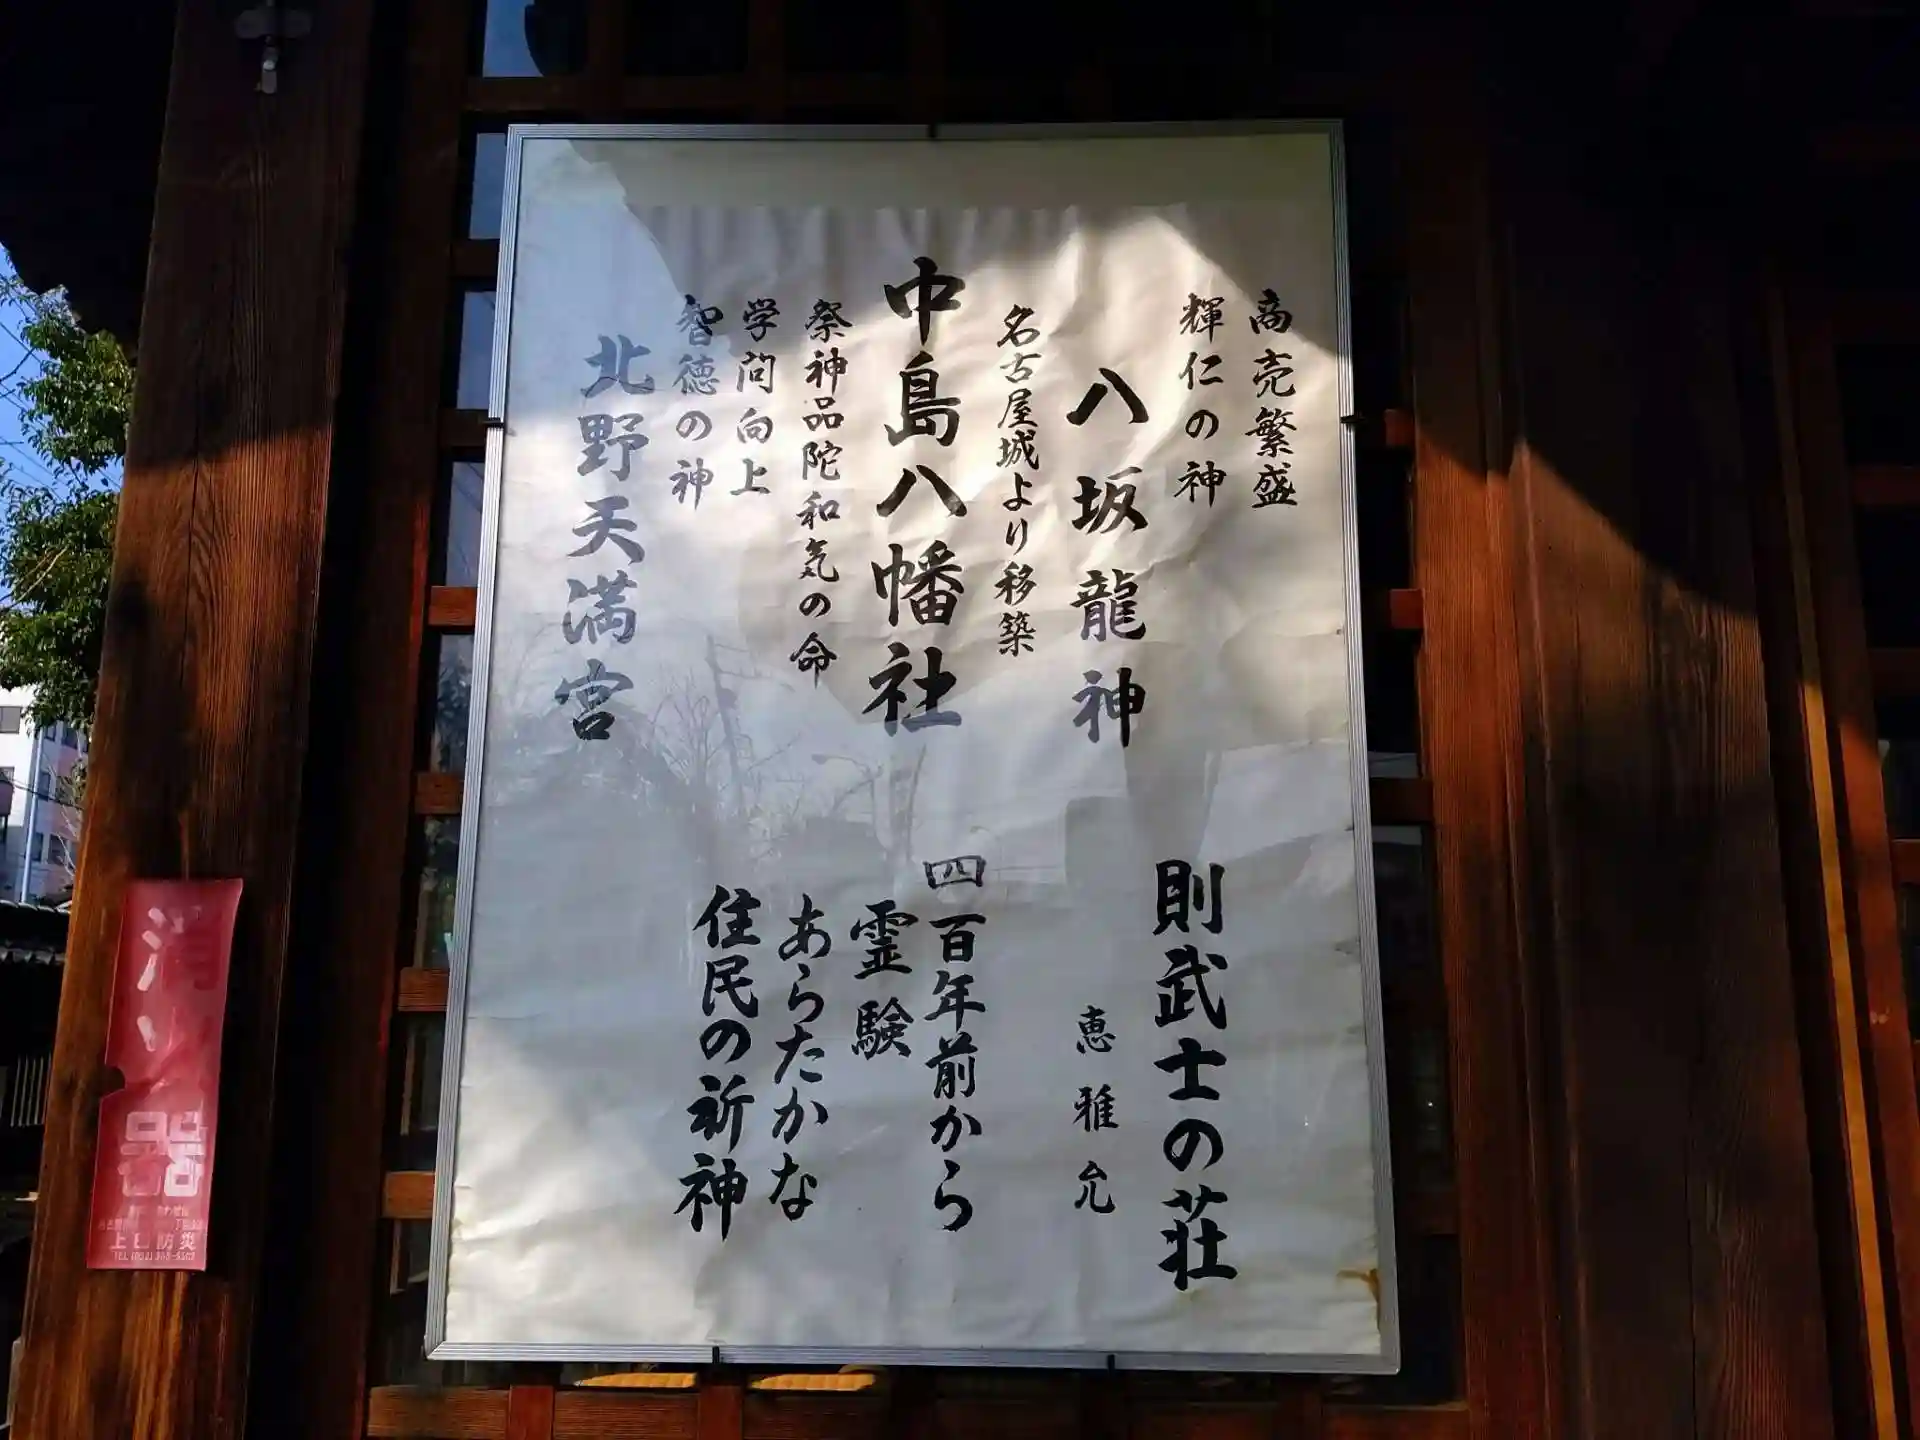 商売繁盛
輝仁の神
八坂龍神
名古屋城より移築
中島八幡社
祭神品陀和気の命
学问向上
智徳の神
北野天満宮
則武士の荘
恵雅允
四百年前から
霊験
あらたかな
住民の祈神
消火器
上日防災